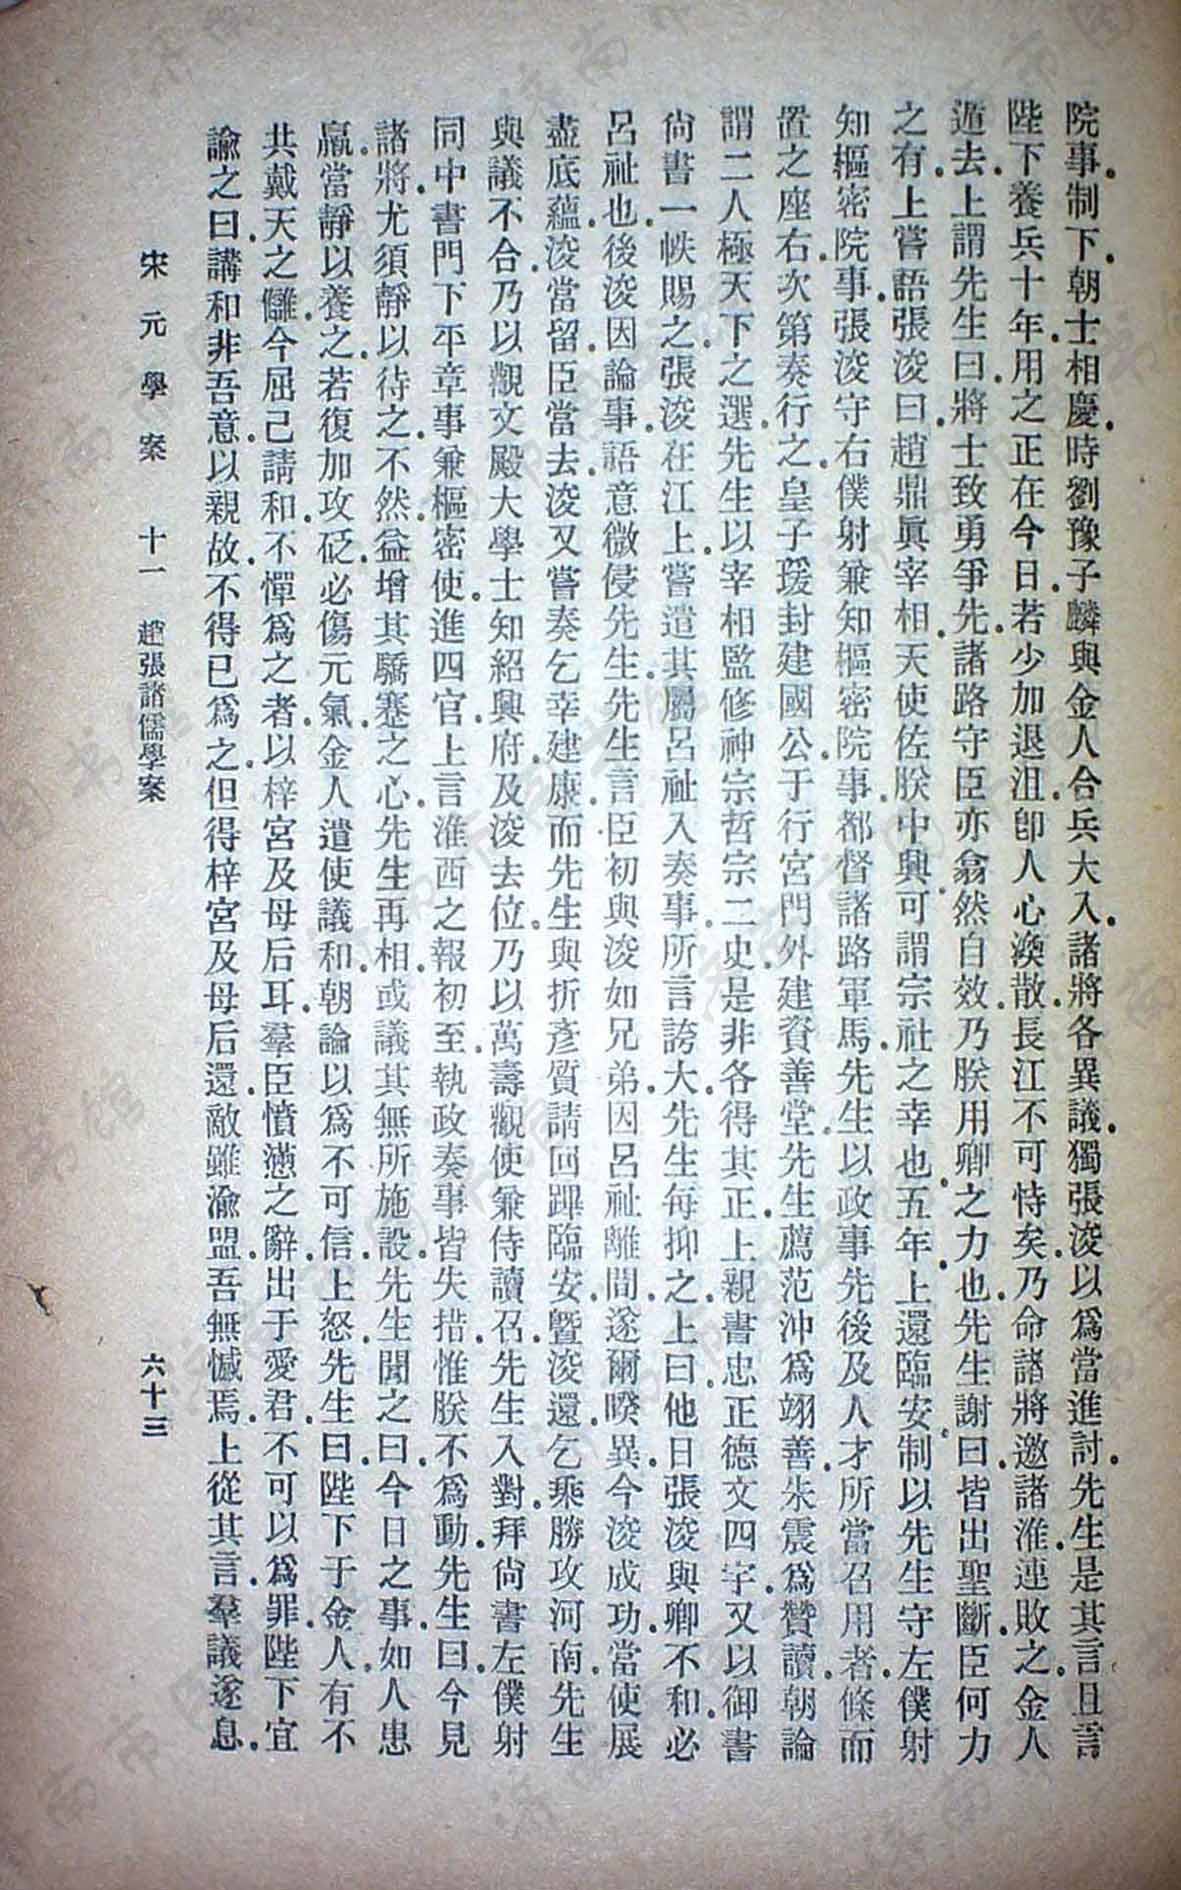 院事制下朝士相慶時劉豫子麟與金人合兵大入諸將各異議獨張浚以爲當進討先生是其言且言
陛下養兵十年用之正在今日若少加退沮卽人心渙散長江不可恃矣乃命諸將邀諸淮連敗之金人
遁去上謂先生曰將士致勇爭先諸路守臣亦翕然自效乃朕用卿之力也先生謝曰皆出聖斷臣何力
之有上嘗語張浚曰趙鼎眞宰相天使佐朕中興可謂宗社之幸也五年上還臨安制以先生守左僕射
知樞密院事張浚守右僕射兼知樞密院事都督諸路軍馬先生以政事先後及人才所當召用者條而
置之座右次第奏行之皇子瑗封建國公于行宮門外建資善堂先生薦范沖爲翊善朱震爲贊讀朝論
謂二人極天下之選先生以宰相監修神宗哲宗二史是非各得其正上親書忠正德文四字又以御書
尙書一帙賜之張浚在江上嘗遣其屬呂祉入奏事所言誇大先生每抑之上曰他日張浚與卿不和必
呂祉也後浚因論事語意微侵先生先生言臣初與浚如兄弟因呂祉離間遂爾暌異今浚成功當使展
盡底蘊浚當留臣當去浚又嘗奏乞幸建康而先生與折彥質請回蹕臨安曁浚還乞乘勝攻河南先生
與議不合乃以觀文殿大學士知紹興府及浚去位乃以萬壽觀使兼侍讀召先生入對拜尙書左僕射
同中書門下平章事兼樞密使進四官上言淮西之報初至執政奏事皆失措惟朕不爲動先生曰今見
諸將尤須靜以待之不然益增其驕蹇之心先生再相或議其無所施設先生聞之曰今日之事如人患
羸當靜以養之若復加攻砭必傷元氣金人遣使議和朝論以爲不可信上怒先生曰陛下于金人有不
共戴天之讎今屈己請和不憚爲之者以梓宮及母后耳羣臣憤懣之辭出于愛君不可以爲罪陛下宜
諭之曰講和非吾意以親故不得已爲之但得梓宮及母后還敵雖渝盟吾無憾焉上從其言羣議遂息
宋元學案 十一 趙張諸儒學案 六十三